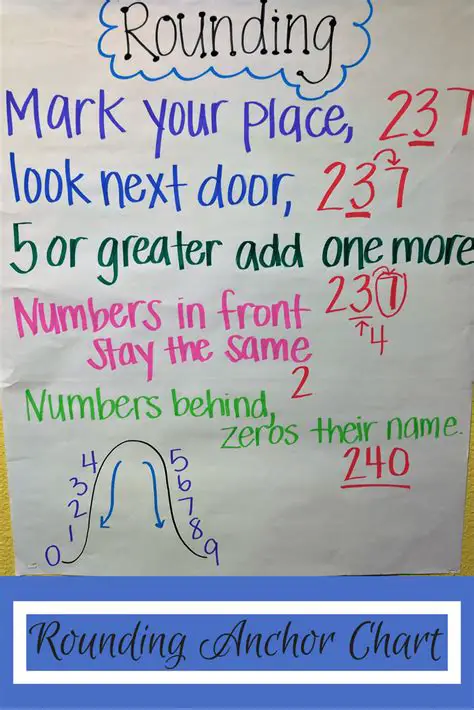 Rounding
Mark your place, 237
look next door, 237
5 or greater add one more
Numbers in front 237
stay the same 4
2
Numbers behind,
zeros their name.
240
4 5
3 6
2 7
1 8
0 9
Rounding Anchor Chart